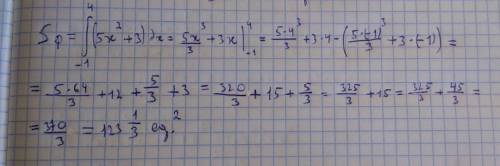 Sφ = ∫₋₁⁴ (5x² + 3) dx = 5x³/3 + 3x |₋₁⁴ = 5·4³/3 + 3·4 - (5·(-1)³/3 + 3·(-1)) =
= 5·64/3 + 12 + 5/3 + 3 = 320/3 + 15 + 5/3 = 325/3 + 15 = 325/3 + 45/3 =
= 370/3 = 123 1/3 ед.²